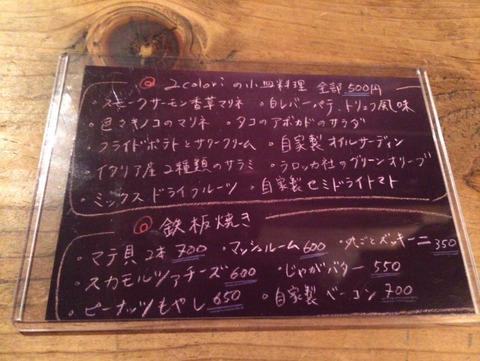 ◎ 2coloriの小皿料理 全部500円
・スモークサーモン香草マリネ ・白レバーパテ、トリュフ風味
・色マキノコのマリネ ・タコのアボカドのサラダ
・フライドポテトとサワークリーム ・自家製オイルサーディン
・イタリア産2種類のサラミ ・ラロッカ社のグリーンオリーブ
・ミックスドライフルーツ ・自家製セミドライトマト
◎ 鉄板焼き
・マテ貝2本 700 ・マッシュルーム 600 ・丸ごとズッキーニ 350
・スカモルツァチーズ 600 ・じゃがバター 550
・ピーナッツもやし 650 ・自家製ベーコン 700